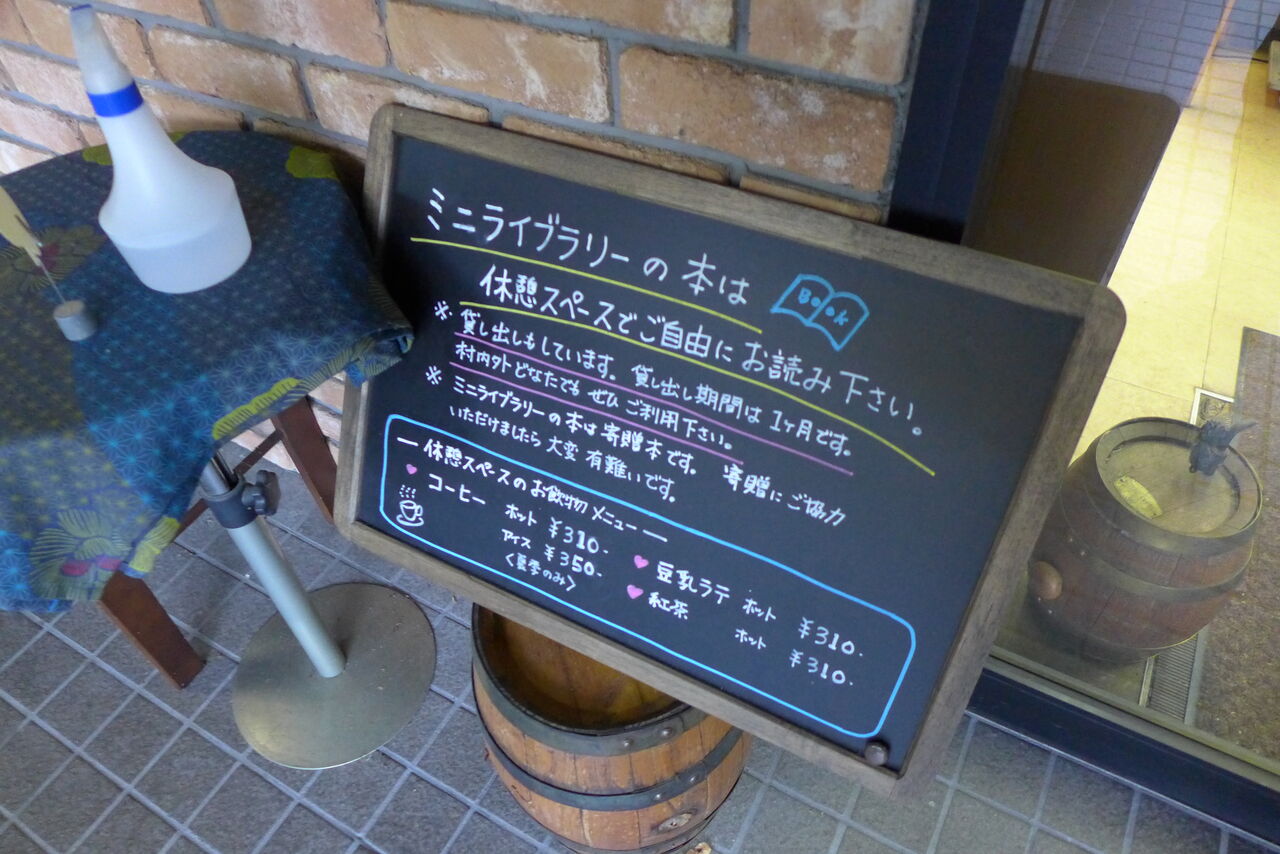 ミニライブラリーの本は
Book
休憩スペースでご自由にお読み下さい。
※ 貸し出しもしています。貸し出し期間は1ヶ月です。
村内外どなたでもぜひご利用下さい。
※ ミニライブラリーの本は寄贈本です。 寄贈にご協力
いただけましたら大変有難いです。
― 休憩スペースのお飲物メニュー ―
コーヒー ホット ¥310.
アイス ¥350.
〈夏季のみ〉
豆乳ラテ ホット ¥310.
紅茶 ホット ¥310.